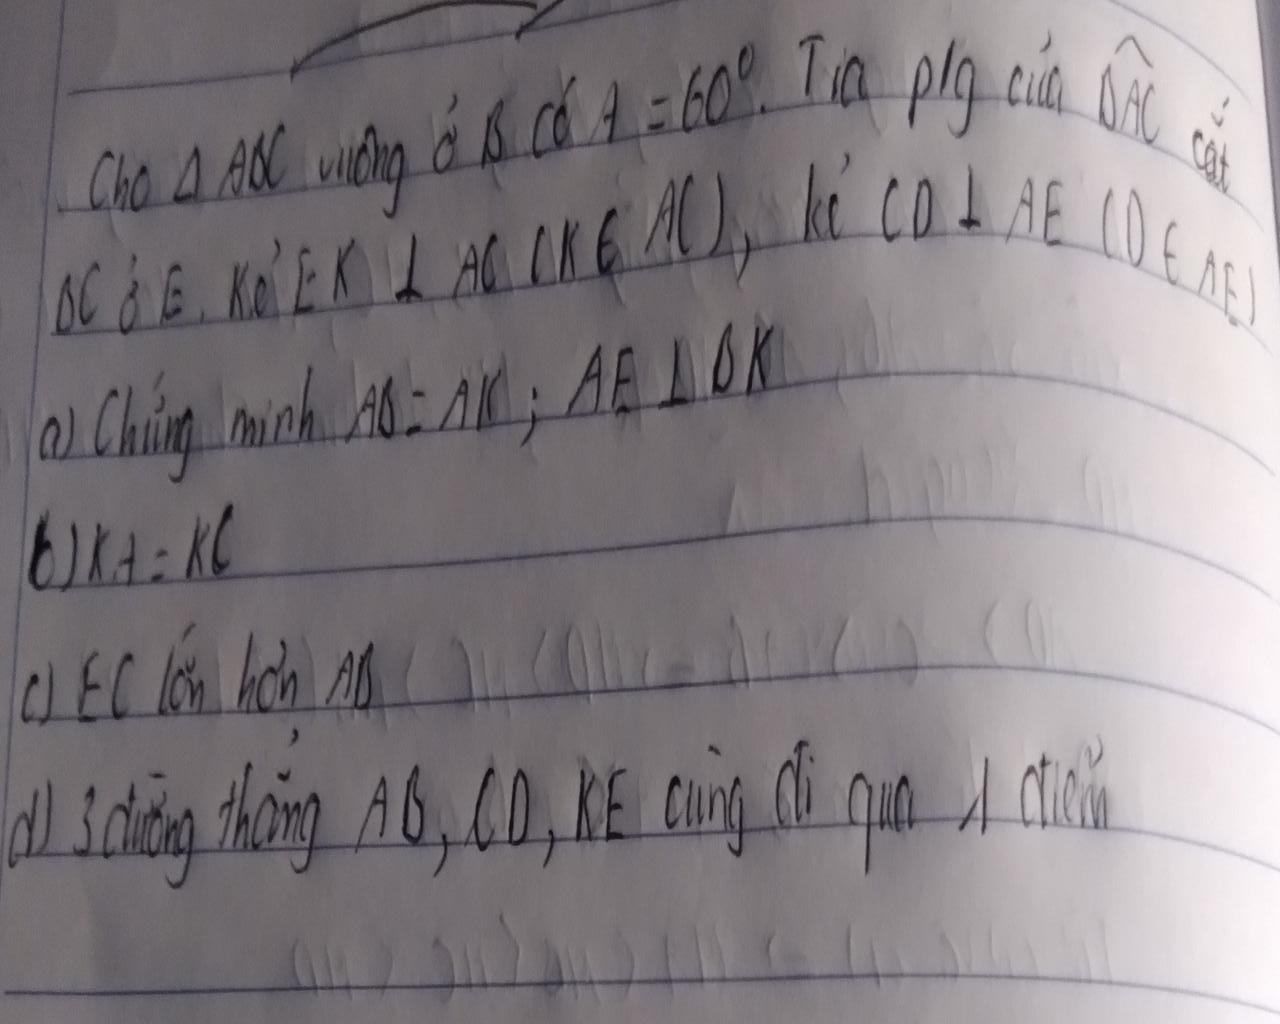 Cho Δ ABC vuông ở B có A = 60°. Tia p/g của BAC cắt
BC ở E. Kẻ EK ⊥ AC (K ∈ AC), kẻ CD ⊥ AE (D ∈ AE)
a) Chứng minh AB = AK ; AE ⊥ BK
b) KA = KC
c) EC lớn hơn AB
d) 3 đường thẳng AB, CD, KE cùng đi qua 1 điểm